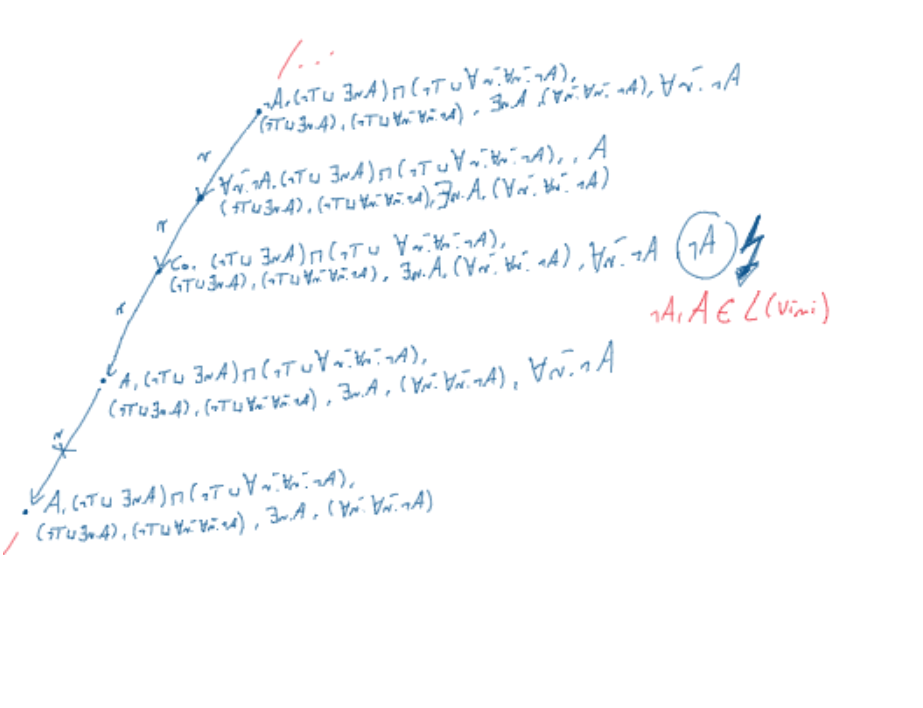 /...
¬A, (¬⊤⊔ ∃r.A)⊓(¬⊤⊔∀r⁻.∀r⁻.¬A),
(¬⊤⊔∃r.A), (¬⊤⊔∀r⁻.∀r⁻.¬A), ∃r.A, (∀r⁻.∀r⁻.¬A), ∀r⁻.¬A
r
∀r⁻.¬A, (¬⊤⊔ ∃r.A)⊓(¬⊤⊔∀r⁻.∀r⁻.¬A), , A
(¬⊤⊔∃r.A), (¬⊤⊔∀r⁻.∀r⁻.¬A), ∃r.A, (∀r⁻.∀r⁻.¬A)
r
C₀, (¬⊤⊔ ∃r.A)⊓(¬⊤⊔ ∀r⁻.∀r⁻.¬A),
(¬⊤⊔∃r.A), (¬⊤⊔∀r⁻.∀r⁻.¬A), ∃r.A, (∀r⁻.∀r⁻.¬A), ∀r⁻.¬A ¬A
¬A, A ∈ L(v_ini)
r
A, (¬⊤⊔ ∃r.A)⊓(¬⊤⊔∀r⁻.∀r⁻.¬A),
(¬⊤⊔∃r.A), (¬⊤⊔∀r⁻.∀r⁻.¬A), ∃r.A, (∀r⁻.∀r⁻.¬A), ∀r⁻.¬A
r
A, (¬⊤⊔ ∃r.A)⊓(¬⊤⊔∀r⁻.∀r⁻.¬A),
(¬⊤⊔∃r.A), (¬⊤⊔∀r⁻.∀r⁻.¬A), ∃r.A, (∀r⁻.∀r⁻.¬A)